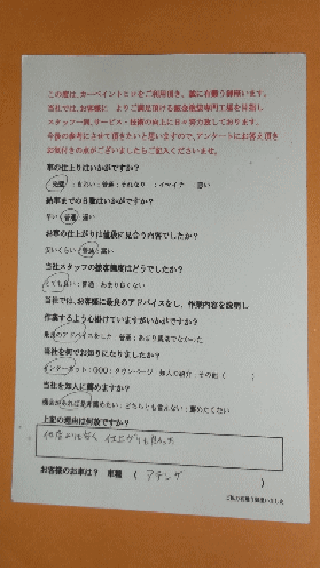 この度は、カーペイントヒロをご利用頂き、誠に有難う御座います。
当社では、お客様に よりご満足頂ける鈑金塗装専門工場を目指し
スタッフ一同、サービス・技術の向上に日々努め致しております。
今後の参考にさせて頂きたいと思いますので、アンケートにお答え頂き
お気付きの点がございましたらご記入くださいませ。
車の仕上りはいかがですか?
完璧 : きれい : 普通 : それなり : イマイチ 悪い
納車までの日数はいかがですか?
早い 普通 遅い
結果の仕上がりは値段に見合う内容でしたか?
安いくらい 普通 高い
当社スタッフの接客態度はどうでしたか?
とても良い : 普通 あまり良くない
当社では、お客様に最良のアドバイスをし、作業内容を説明し
作業するよう心掛けていますがいかがですか?
最適のアドバイスをした 普通 : あまり親切でなかった
当社を何でお知りになりましたか?
インターネット : タウンページ 知人の紹介 その他 ( )
当社を知人に薦めますか?
機会があれば是非薦めたい : どちらとも言えない : 薦めたくない
上記の理由は何故ですか?
他店よりも安く 仕上がりも良かった
お客様のお車は? 車種 ( アテンザ )
ご協力有難う御座いました